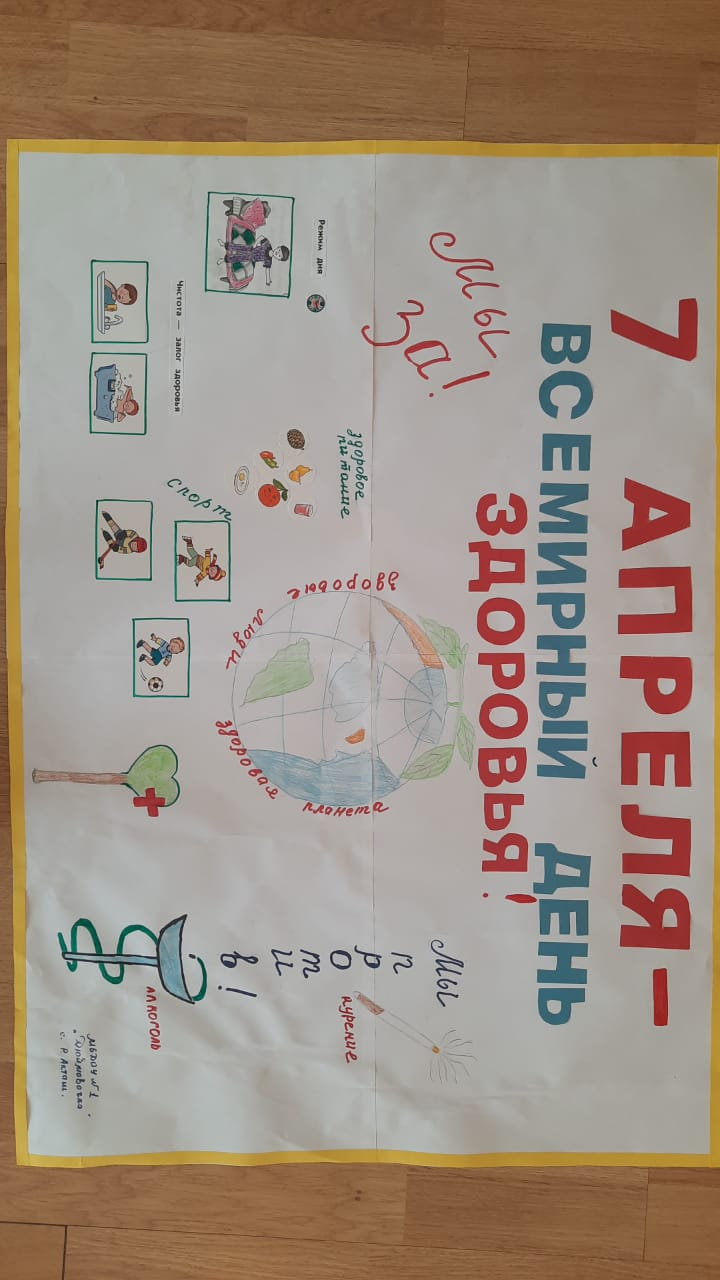 7 АПРЕЛЯ –
ВСЕМИРНЫЙ ДЕНЬ
ЗДОРОВЬЯ!
Мы
за!
Режим дня
Чистота — залог здоровья
здоровое
питание
спорт
здоровые
люди
здоровая
планета
Мы
п
р
о
т
и
в!
курение
алкоголь
МБДОУ №1
"Дюймовочка"
с. Р. Акташ.